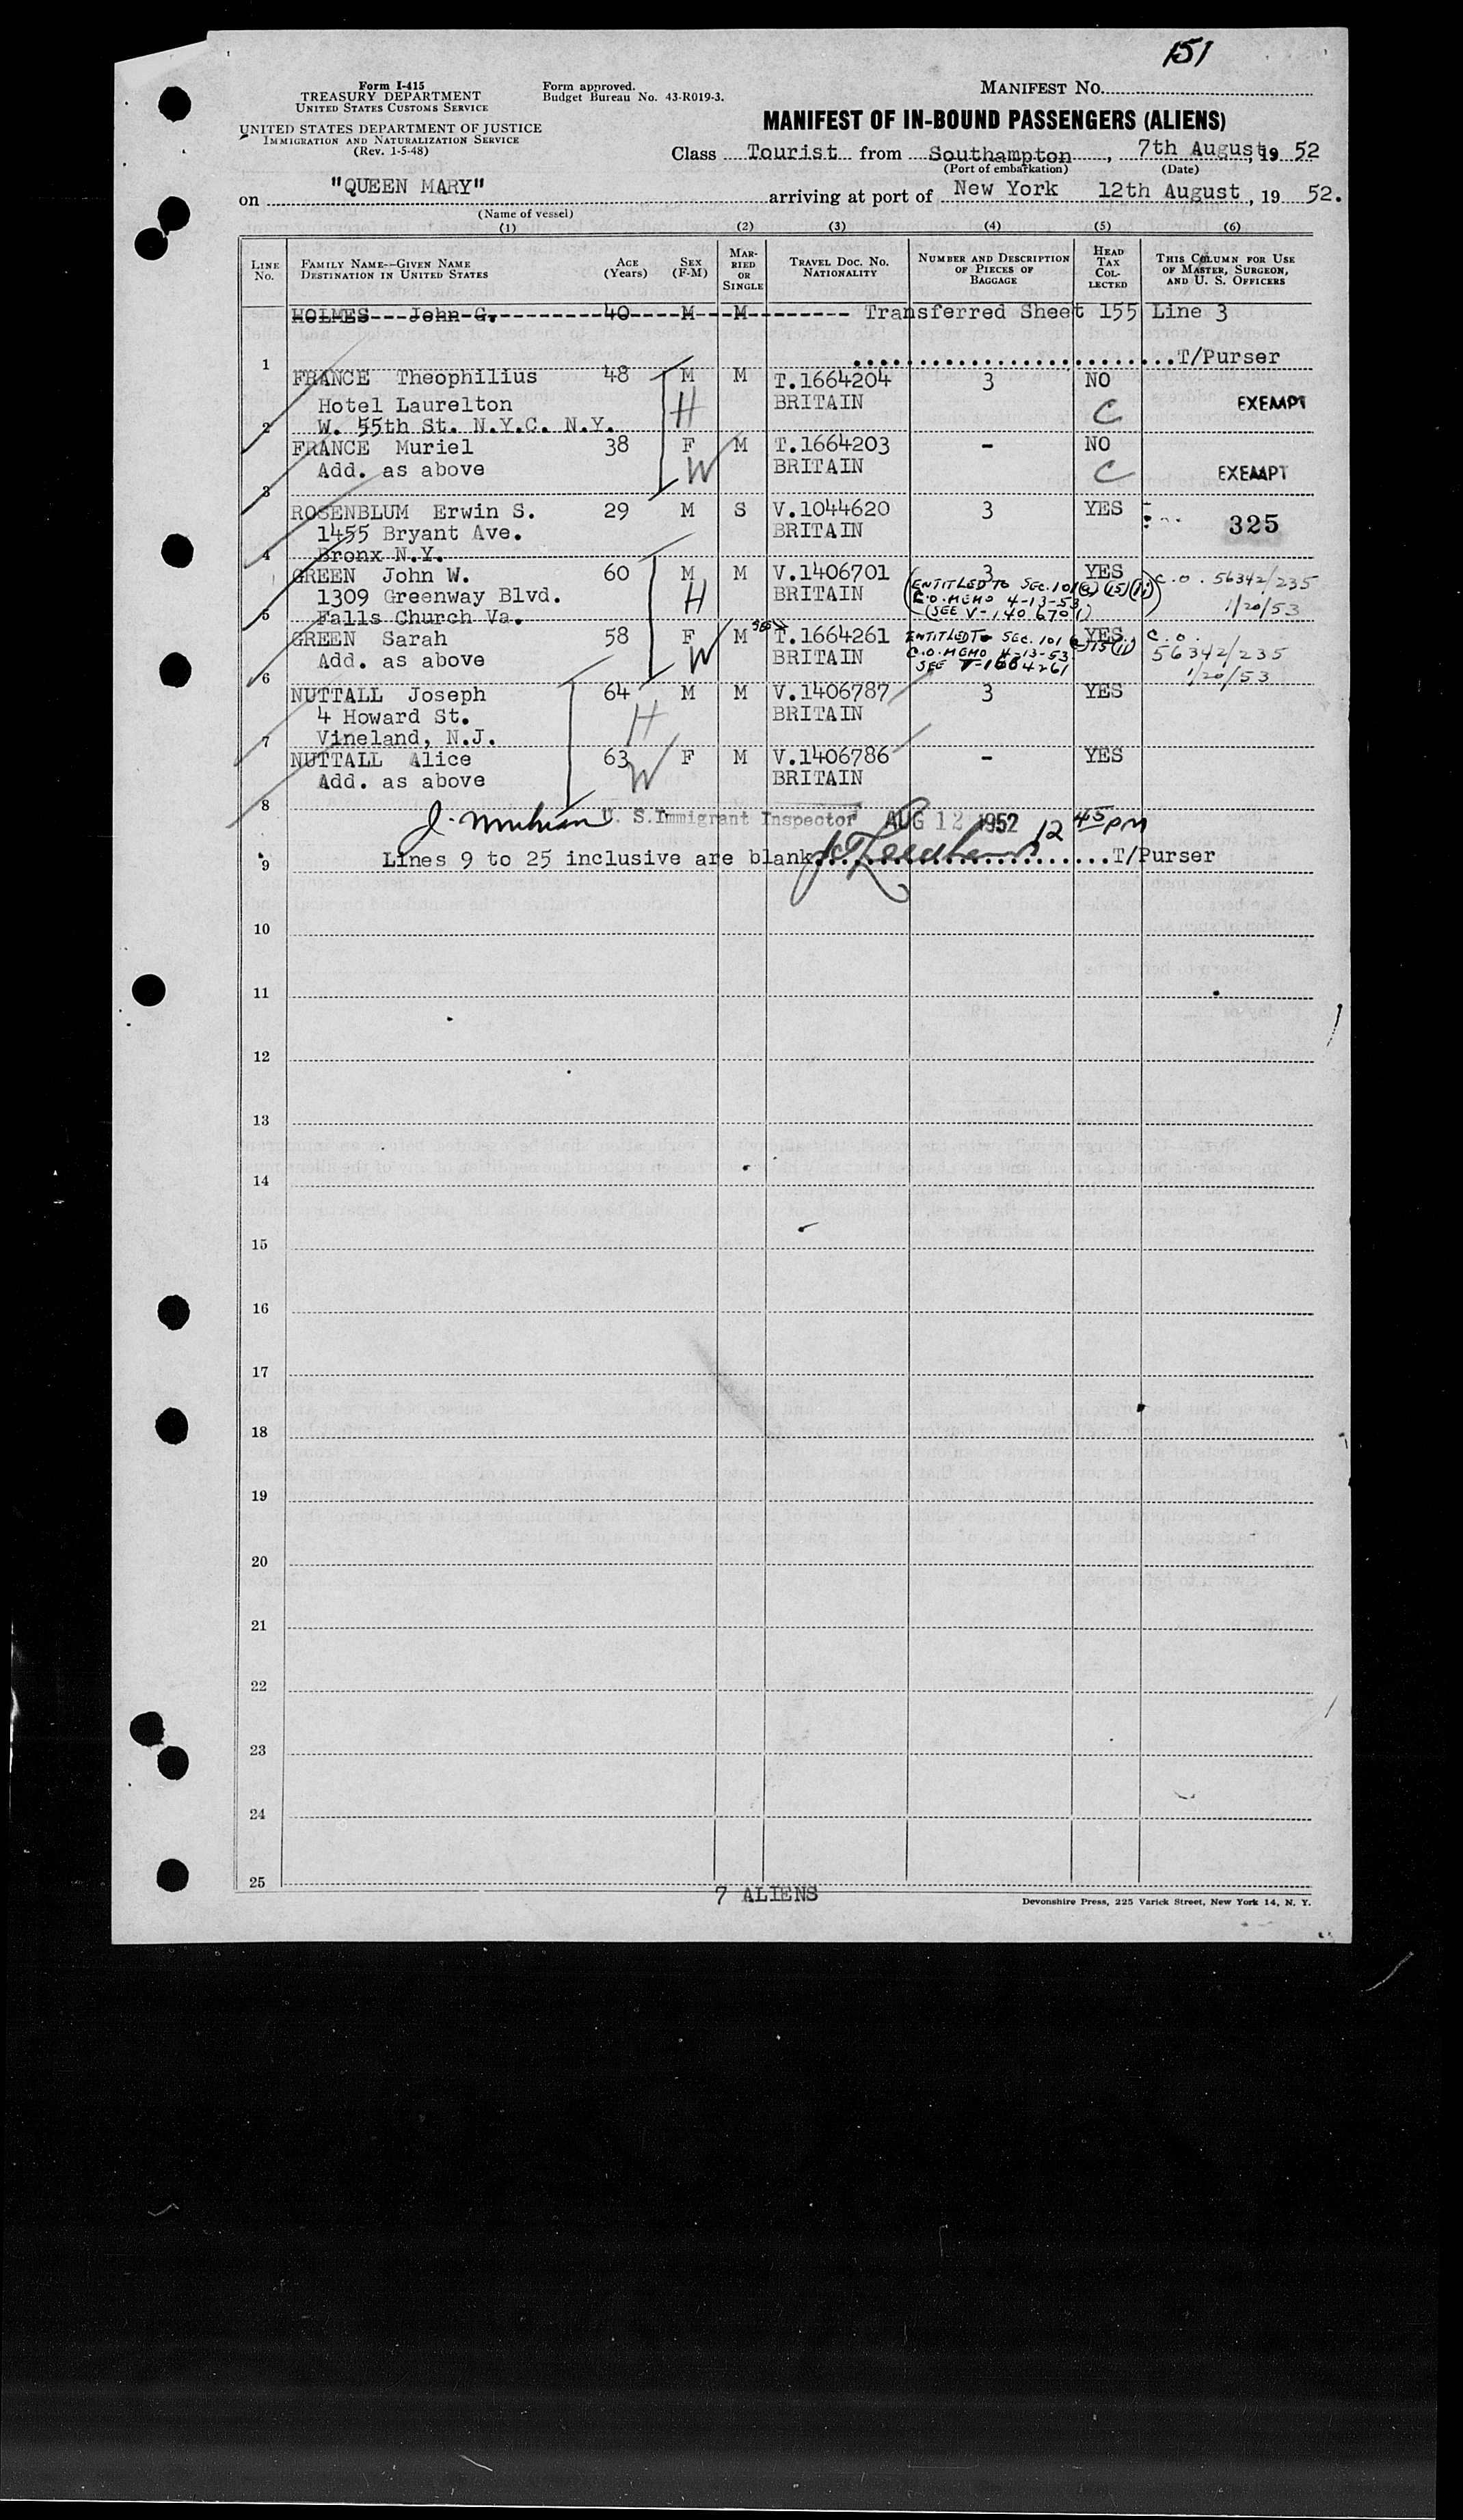 151
Form I-415
TREASURY DEPARTMENT
UNITED STATES CUSTOMS SERVICE
Form approved.
Budget Bureau No. 43-R019-3.
MANIFEST NO.
UNITED STATES DEPARTMENT OF JUSTICE
IMMIGRATION AND NATURALIZATION SERVICE
(Rev. 1-5-48)
MANIFEST OF IN-BOUND PASSENGERS (ALIENS)
Class Tourist from Southampton, 7th August, 19 52
(Port of embarkation) (Date)
on "QUEEN MARY" arriving at port of New York 12th August, 19 52.
(Name of vessel)
(1) (2) (3) (4) (5) (6)
LINE NO. FAMILY NAME--GIVEN NAME DESTINATION IN UNITED STATES AGE (Years) SEX (F-M) MARRIED OR SINGLE TRAVEL DOC. NO. NATIONALITY NUMBER AND DESCRIPTION OF PIECES OF BAGGAGE HEAD TAX COLLECTED THIS COLUMN FOR USE OF MASTER, SURGEON, AND U. S. OFFICERS
HOLMES John G. 40 M M Transferred Sheet 155 Line 3
1 T/Purser
FRANCE Theophilius 48 M M T.1664204 3 NO
Hotel Laurelton H BRITAIN C EXEMPT
2 W. 55th St. N.Y.C. N.Y.
FRANCE Muriel 38 F M T.1664203 - NO
Add. as above W BRITAIN C EXEMPT
3
ROSENBLUM Erwin S. 29 M S V.1044620 3 YES
1455 Bryant Ave. BRITAIN 325
4 Bronx N.Y.
GREEN John W. 60 M M V.1406701 3 YES C.O. 56342/235
1309 Greenway Blvd. H BRITAIN (ENTITLED TO SEC. 101(a)(15)(ii) 1/20/53
C.O. MEMO 4-13-53
5 Falls Church Va. (SEE V-1406701)
GREEN Sarah 58 F M SEE T.1664261 ENTITLED TO SEC. 101 YES C.O.
Add. as above W BRITAIN C.O. MEMO 4-13-53 56342/235
6 SEE T-1664261 1/20/53
NUTTALL Joseph 64 M M V.1406787 3 YES
4 Howard St. H BRITAIN
7 Vineland, N.J.
NUTTALL Alice 63 F M V.1406786 - YES
Add. as above W BRITAIN
8
U. S. Immigrant Inspector AUG 12 1952 12 45 PM
9 Lines 9 to 25 inclusive are blank T/Purser
10
11
12
13
14
15
16
17
18
19
20
21
22
23
24
25
7 ALIENS
Devonshire Press, 225 Varick Street, New York 14, N. Y.